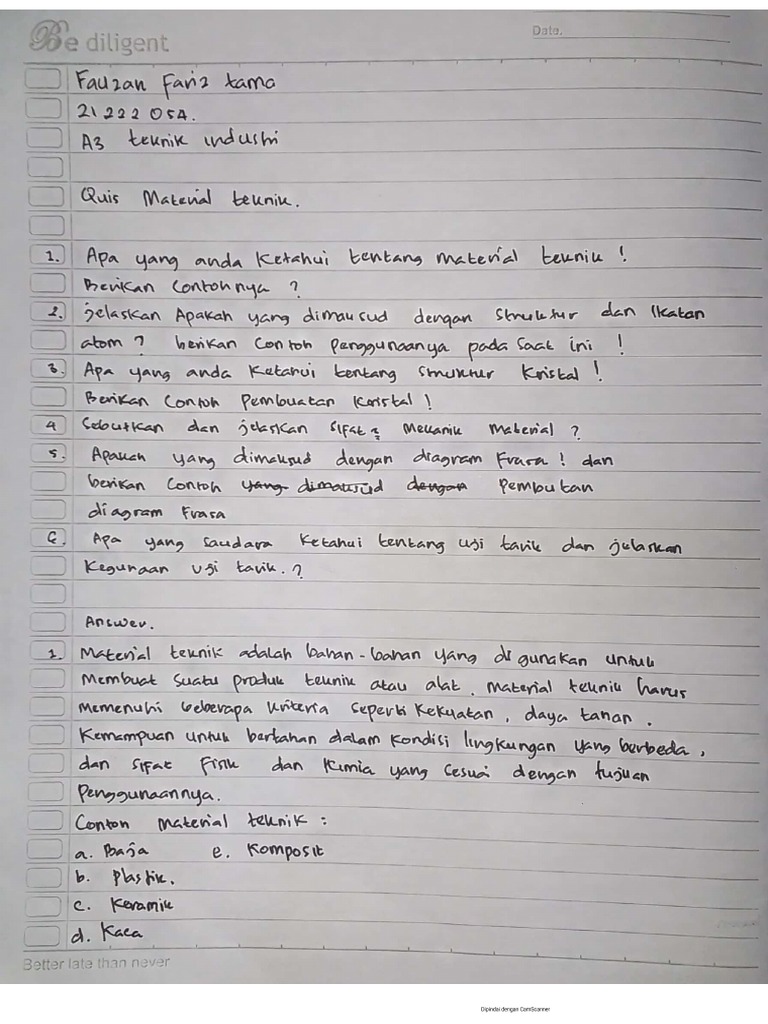 Be diligent
Date.
Fauzan Fariz tama
21 222 054.
A3 teknik industri
Quis Material teknik.
1. Apa yang anda Ketahui tentang material teknik !
Berikan Contohnya ?
2. jelaskan Apakah yang dimaksud dengan Struktur dan Ikatan
atom ? berikan Contoh penggunaanya pada saat ini !
3. Apa yang anda Ketahui tentang struktur Kristal !
Berikan Contoh Pembuatan Kristal !
4 Sebutkan dan jelaskan sifat2 Mekanik Material ?
5. Apakah yang dimaksud dengan diagram Frasa ! dan
berikan Contoh yang dimaksud dengan Pembutan
diagram Frasa
6. Apa yang saudara Ketahui tentang uji tarik dan jelaskan
Kegunaan uji tarik. ?
Answer.
1. Material teknik adalah bahan-bahan yang di gunakan untuk
Membuat Suatu produk teknik atau alat. Material teknik harus
memenuhi beberapa kriteria seperti Kekuatan, daya tahan.
Kemampuan untuk bertahan dalam Kondisi lingkungan yang berbeda,
dan Sifat Fisik dan Kimia yang Sesuai dengan tujuan
Penggunaannya.
Contoh material teknik :
a. Baja e. Komposit
b. Plastik.
c. Keramik
d. Kaca
Better late than never
Dipindai dengan CamScanner